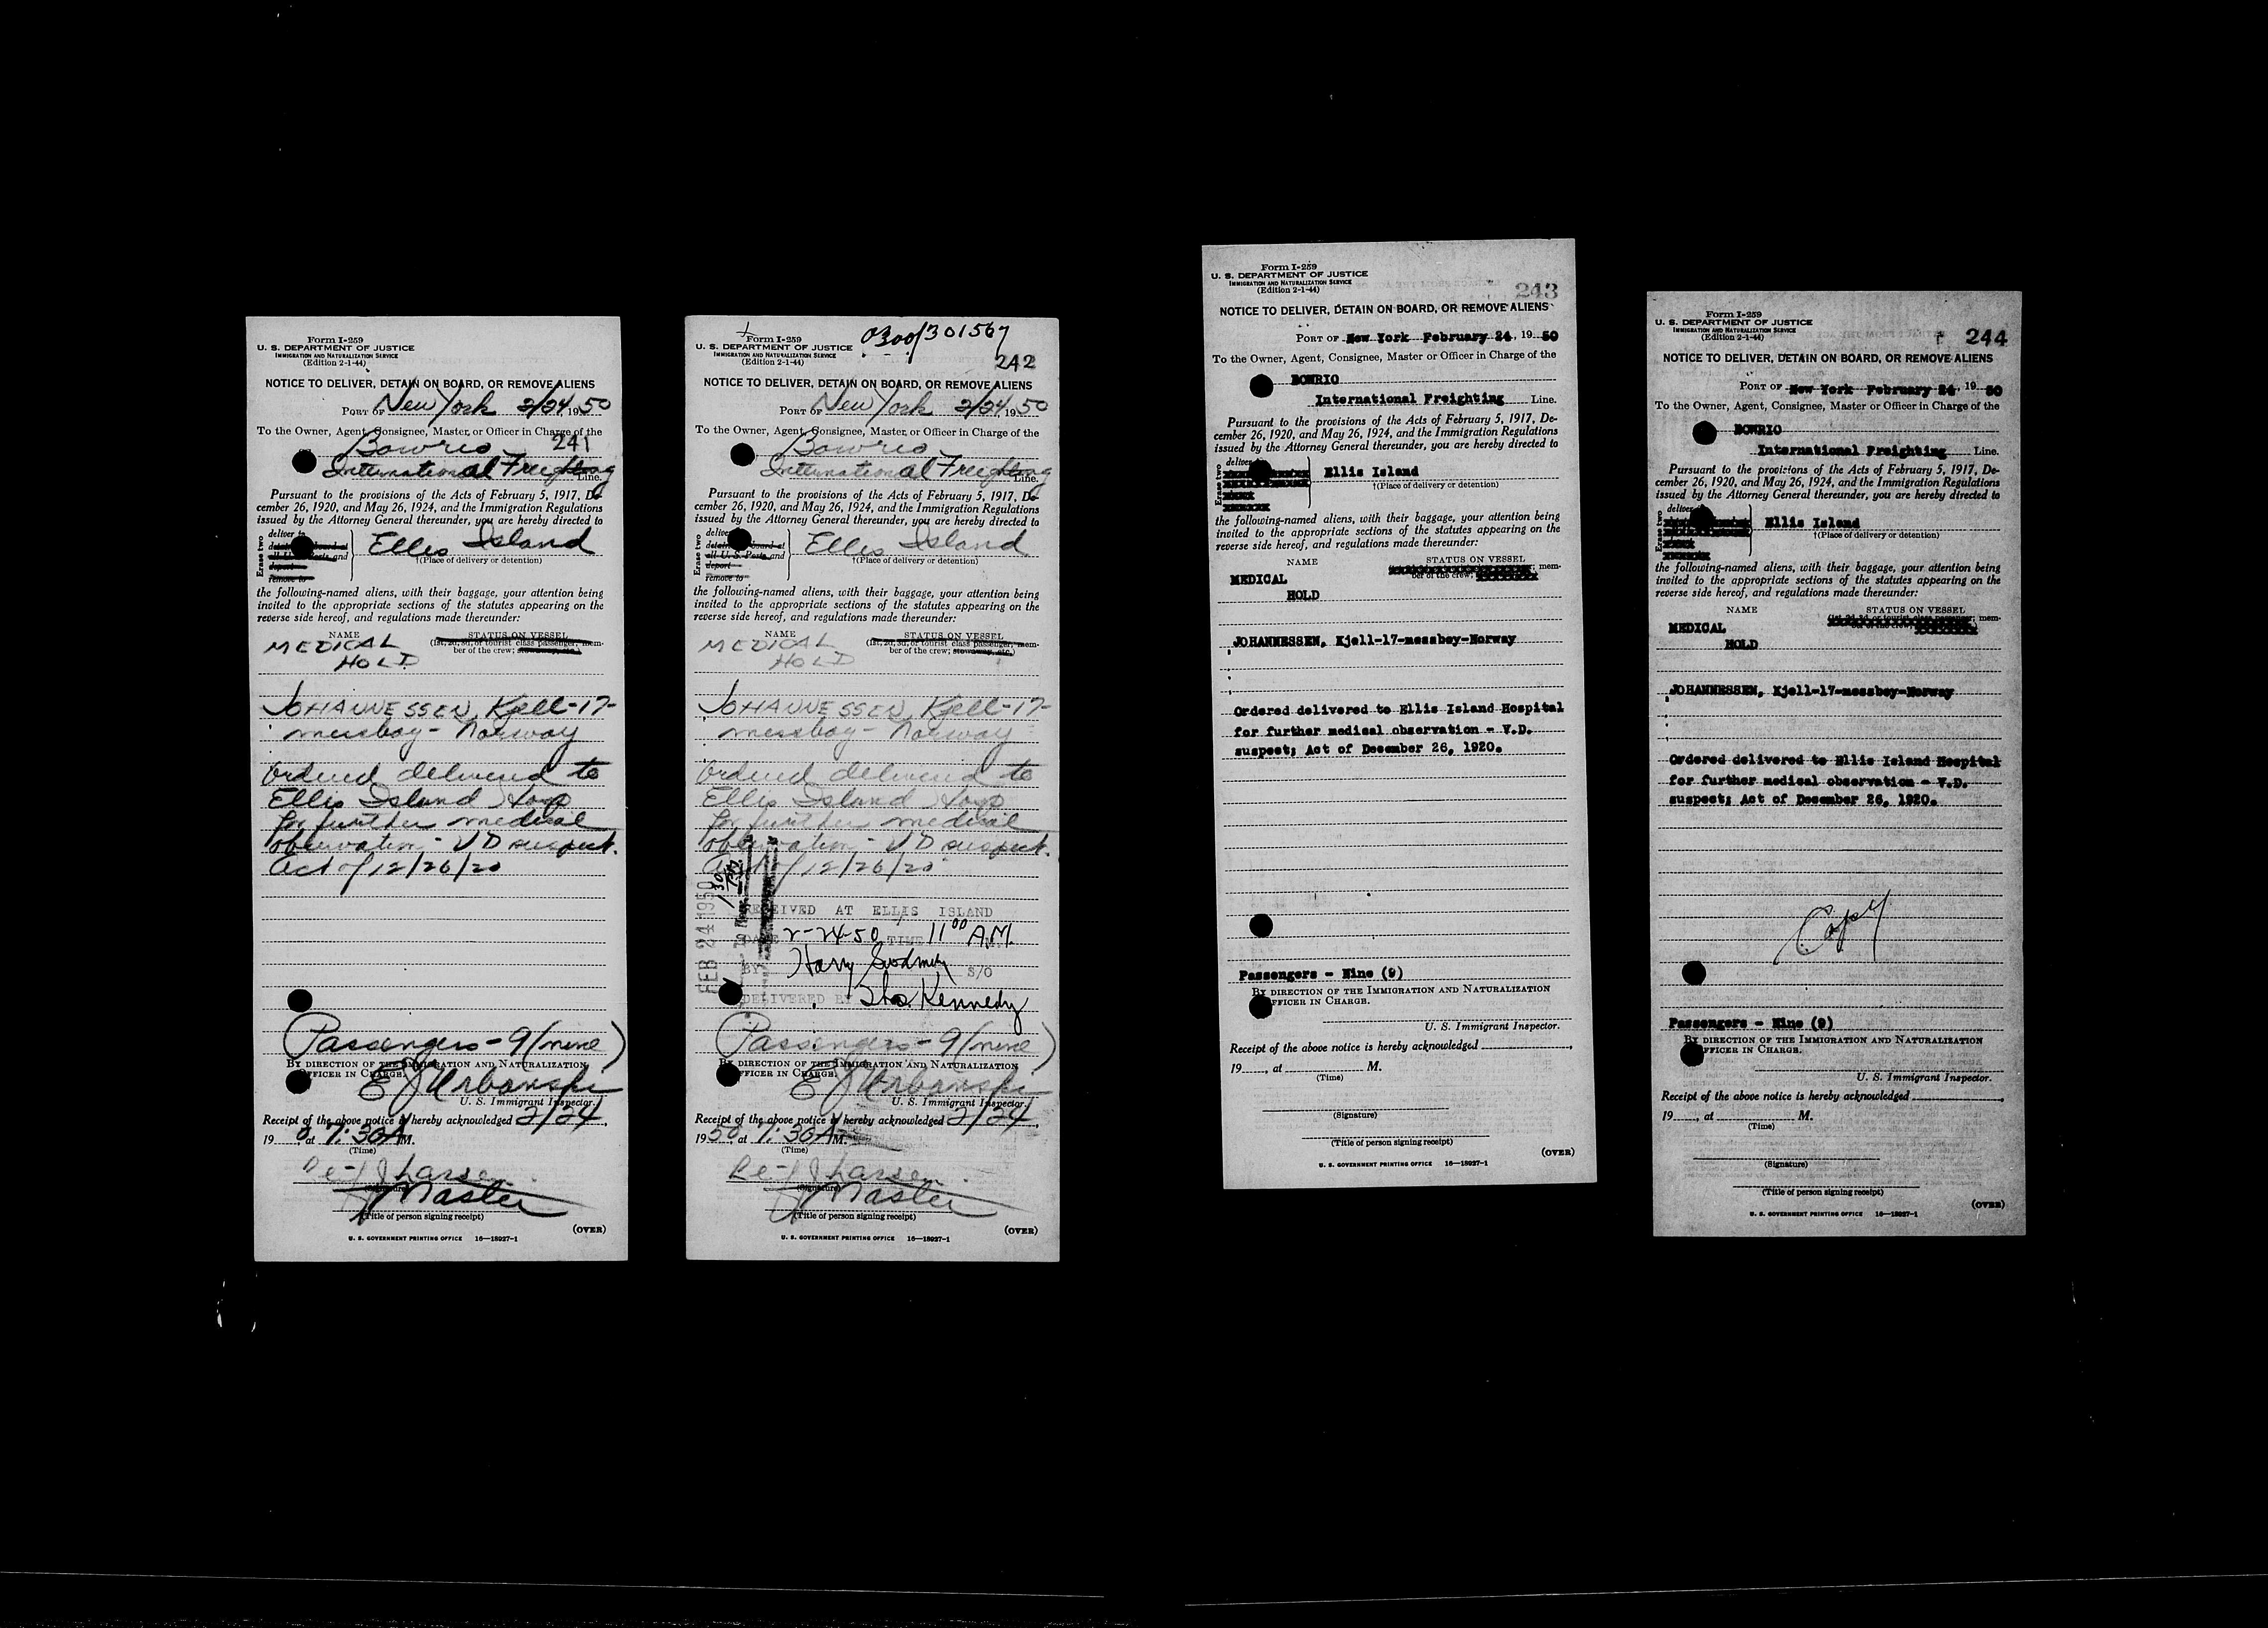 Form I-259
U. S. DEPARTMENT OF JUSTICE
IMMIGRATION AND NATURALIZATION SERVICE
(Edition 2-1-44)
NOTICE TO DELIVER, DETAIN ON BOARD, OR REMOVE ALIENS
PORT OF New York 2/24, 1950
To the Owner, Agent, Consignee, Master, or Officer in Charge of the
241
Bowrio
International Freighting Line.
Pursuant to the provisions of the Acts of February 5, 1917, De-
cember 26, 1920, and May 26, 1924, and the Immigration Regulations
issued by the Attorney General thereunder, you are hereby directed to
Erase two
deliver to
detain on board at
all U. S. Ports and
deport
remove to
Ellis Island
†(Place of delivery or detention)
the following-named aliens, with their baggage, your attention being
invited to the appropriate sections of the statutes appearing on the
reverse side hereof, and regulations made thereunder:
NAME STATUS ON VESSEL
(1st, 2d, 3d, or tourist class passenger; mem-
ber of the crew; stowaway, etc.)
MEDICAL
HOLD
JOHANNESSEN, Kjell-17-
messboy - Norway
Ordered delivered to
Ellis Island Hosp
for further medical
observation - VD suspect.
Act of 12/26/20
Passengers - 9 (nine)
BY DIRECTION OF THE IMMIGRATION AND NATURALIZATION
OFFICER IN CHARGE.
E J Urbanski
U. S. Immigrant Inspector.
Receipt of the above notice is hereby acknowledged 2/24,
19 0, at 7:30 A M.
(Time)
Larsen
(Signature)
Master
(Title of person signing receipt)
(OVER)
U. S. GOVERNMENT PRINTING OFFICE 16—18927-1
0300/301567
Form I-259
U. S. DEPARTMENT OF JUSTICE
IMMIGRATION AND NATURALIZATION SERVICE
(Edition 2-1-44)
242
NOTICE TO DELIVER, DETAIN ON BOARD, OR REMOVE ALIENS
PORT OF New York 2/24, 1950
To the Owner, Agent, Consignee, Master, or Officer in Charge of the
Bowrio
International Freighting Line.
Pursuant to the provisions of the Acts of February 5, 1917, De-
cember 26, 1920, and May 26, 1924, and the Immigration Regulations
issued by the Attorney General thereunder, you are hereby directed to
Erase two
deliver
detain on board at
all U. S. Ports and
deport
remove to
Ellis Island
†(Place of delivery or detention)
the following-named aliens, with their baggage, your attention being
invited to the appropriate sections of the statutes appearing on the
reverse side hereof, and regulations made thereunder:
NAME STATUS ON VESSEL
(1st, 2d, 3d, or tourist class passenger; mem-
ber of the crew; stowaway, etc.)
MEDICAL
HOLD
JOHANNESSEN, Kjell-17-
messboy - Norway
Ordered delivered to
Ellis Island Hosp
for further medical
observation - VD suspect.
Act of 12/26/20
FEB 24 1950
RECEIVED AT ELLIS ISLAND
DATE 2-24-50 TIME 11 00 A.M.
BY Harry S/O
DELIVERED BY Kennedy
Passengers - 9 (nine)
BY DIRECTION OF THE IMMIGRATION AND NATURALIZATION
OFFICER IN CHARGE.
E J Urbanski
U. S. Immigrant Inspector.
Receipt of the above notice is hereby acknowledged 2/24,
1950, at 7:30 A M.
(Time)
Larsen
(Signature)
Master
(Title of person signing receipt)
(OVER)
U. S. GOVERNMENT PRINTING OFFICE 16—18927-1
Form I-259
U. S. DEPARTMENT OF JUSTICE
IMMIGRATION AND NATURALIZATION SERVICE
(Edition 2-1-44)
243
NOTICE TO DELIVER, DETAIN ON BOARD, OR REMOVE ALIENS
PORT OF New York February 24, 19 50
To the Owner, Agent, Consignee, Master or Officer in Charge of the
BOWRIO
International Freighting Line.
Pursuant to the provisions of the Acts of February 5, 1917, De-
cember 26, 1920, and May 26, 1924, and the Immigration Regulations
issued by the Attorney General thereunder, you are hereby directed to
Erase two
deliver
Ellis Island
†(Place of delivery or detention)
the following-named aliens, with their baggage, your attention being
invited to the appropriate sections of the statutes appearing on the
reverse side hereof, and regulations made thereunder:
NAME STATUS ON VESSEL
; mem-
ber of the crew;
MEDICAL
HOLD
JOHANNESSEN, Kjell-17-messboy-Norway
Ordered delivered to Ellis Island Hospital
for further medical observation - V.D.
suspect; Act of December 26, 1920.
Passengers - Nine (9)
BY DIRECTION OF THE IMMIGRATION AND NATURALIZATION
OFFICER IN CHARGE.
U. S. Immigrant Inspector.
Receipt of the above notice is hereby acknowledged
19 , at M.
(Time)
(Signature)
(Title of person signing receipt)
(OVER)
U. S. GOVERNMENT PRINTING OFFICE 16—18927-1
Form I-259
U. S. DEPARTMENT OF JUSTICE
IMMIGRATION AND NATURALIZATION SERVICE
(Edition 2-1-44)
244
NOTICE TO DELIVER, DETAIN ON BOARD, OR REMOVE ALIENS
PORT OF New York February 24, 19 50
To the Owner, Agent, Consignee, Master or Officer in Charge of the
BOWRIO
International Freighting Line.
Pursuant to the provisions of the Acts of February 5, 1917, De-
cember 26, 1920, and May 26, 1924, and the Immigration Regulations
issued by the Attorney General thereunder, you are hereby directed to
Erase two
deliver
Ellis Island
†(Place of delivery or detention)
the following-named aliens, with their baggage, your attention being
invited to the appropriate sections of the statutes appearing on the
reverse side hereof, and regulations made thereunder:
NAME STATUS ON VESSEL
(1st, 2d, 3d, or tourist class passenger; mem-
ber of the crew;
MEDICAL
HOLD
JOHANNESSEN, Kjell-17-messboy-Norway
Ordered delivered to Ellis Island Hospital
for further medical observation - V.D.
suspect; Act of December 26, 1920.
Copy
Passengers - Nine (9)
BY DIRECTION OF THE IMMIGRATION AND NATURALIZATION
OFFICER IN CHARGE.
U. S. Immigrant Inspector.
Receipt of the above notice is hereby acknowledged
19 , at M.
(Time)
(Signature)
(Title of person signing receipt)
(OVER)
U. S. GOVERNMENT PRINTING OFFICE 16—18927-1